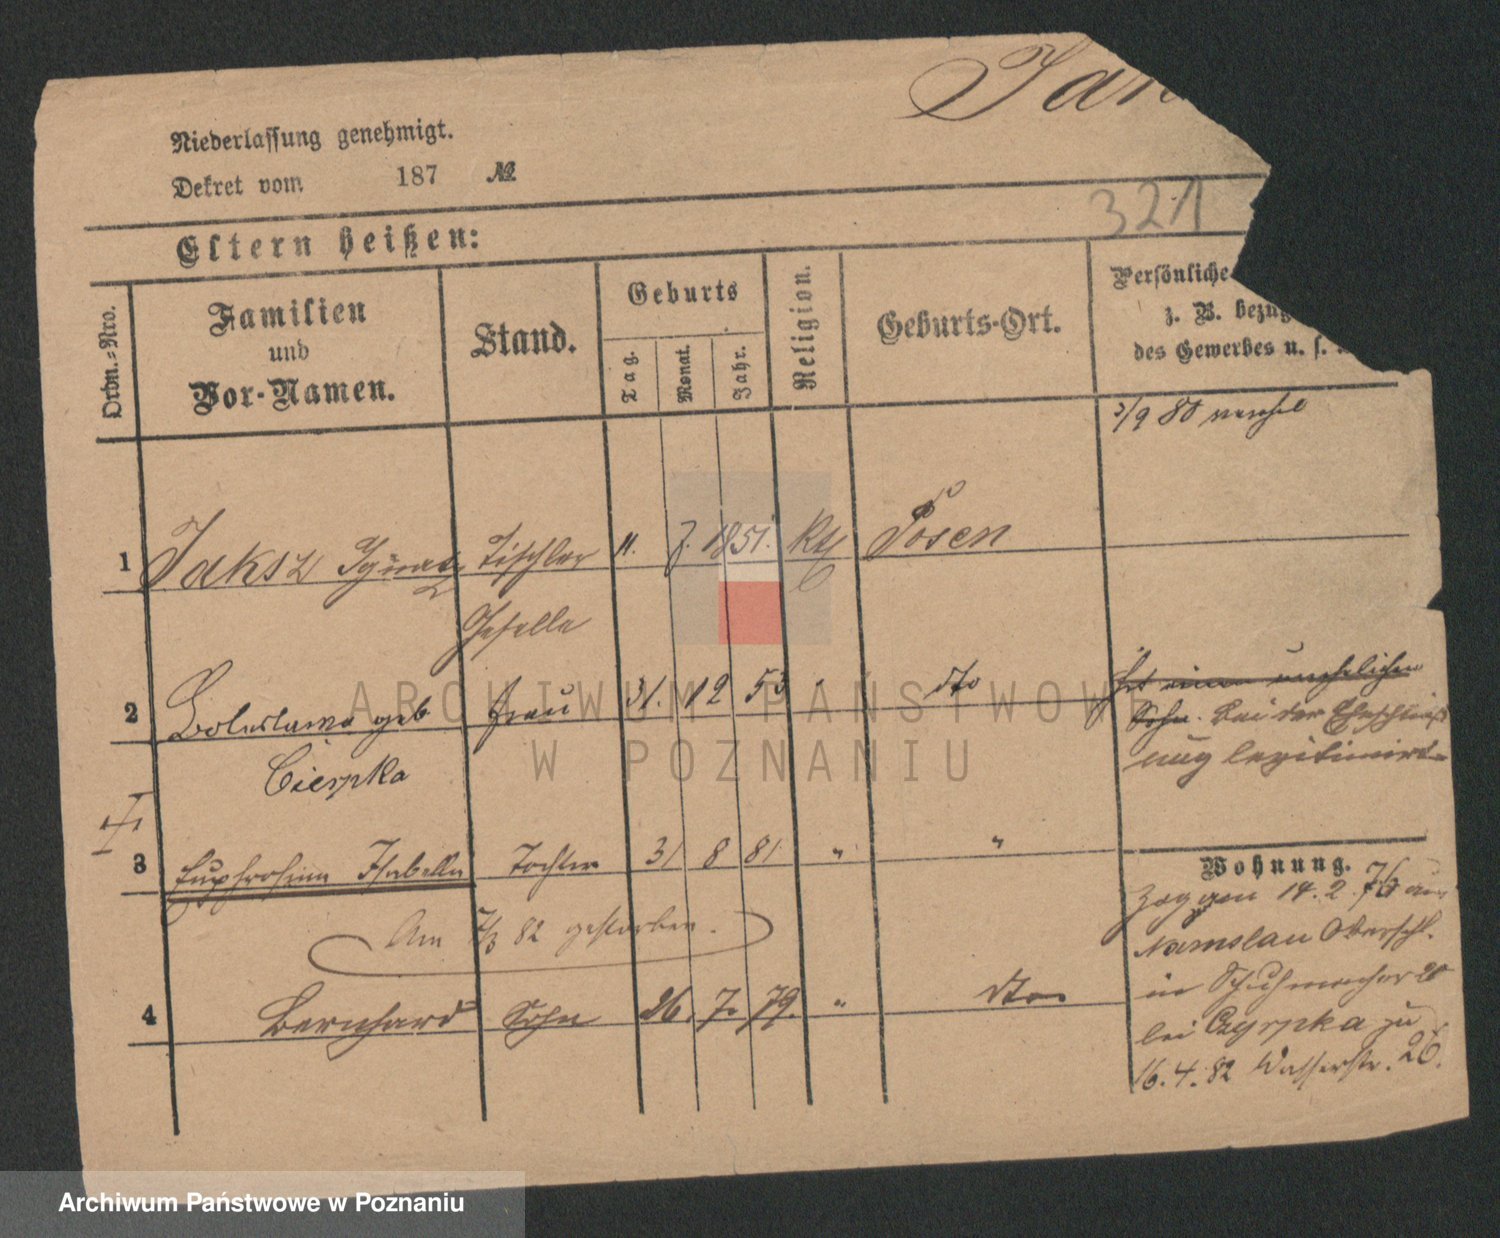 Niederlassung genehmigt.
Dekret vom 187 №
321
Eltern heißen:
Ordn.-Nro.
Familien
und
Vor-Namen.
Stand.
Geburts
Tag. Monat. Jahr.
Religion.
Geburts-Ort.
Persönliche
z. B.
des Gewerbes u. s.
3/9 80
1 Jaksz Ignatz Tischler 11. 7. 1851. Kth Posen
Geselle
2 Boleslawa geb Frau 31. 12 53 " dto
Cierpka
hat einen unehelichen
Sohn. bei der Eheschließ
ung legitimirt
3 Euphrosina Isabella Tochter 31 8 81 " "
Am 7/3 82 gestorben.
4 Bernhard Sohn 26. 7. 79. " dto
Wohnung.
Zog am 14. 2. 76 aus
Namslau Oberschl.
in Schuhmacher 20
bei Cyrpka zu
16. 4. 82 Wasserstr. 26.
ARCHIWUM PAŃSTWOWE
W POZNANIU
Archiwum Państwowe w Poznaniu